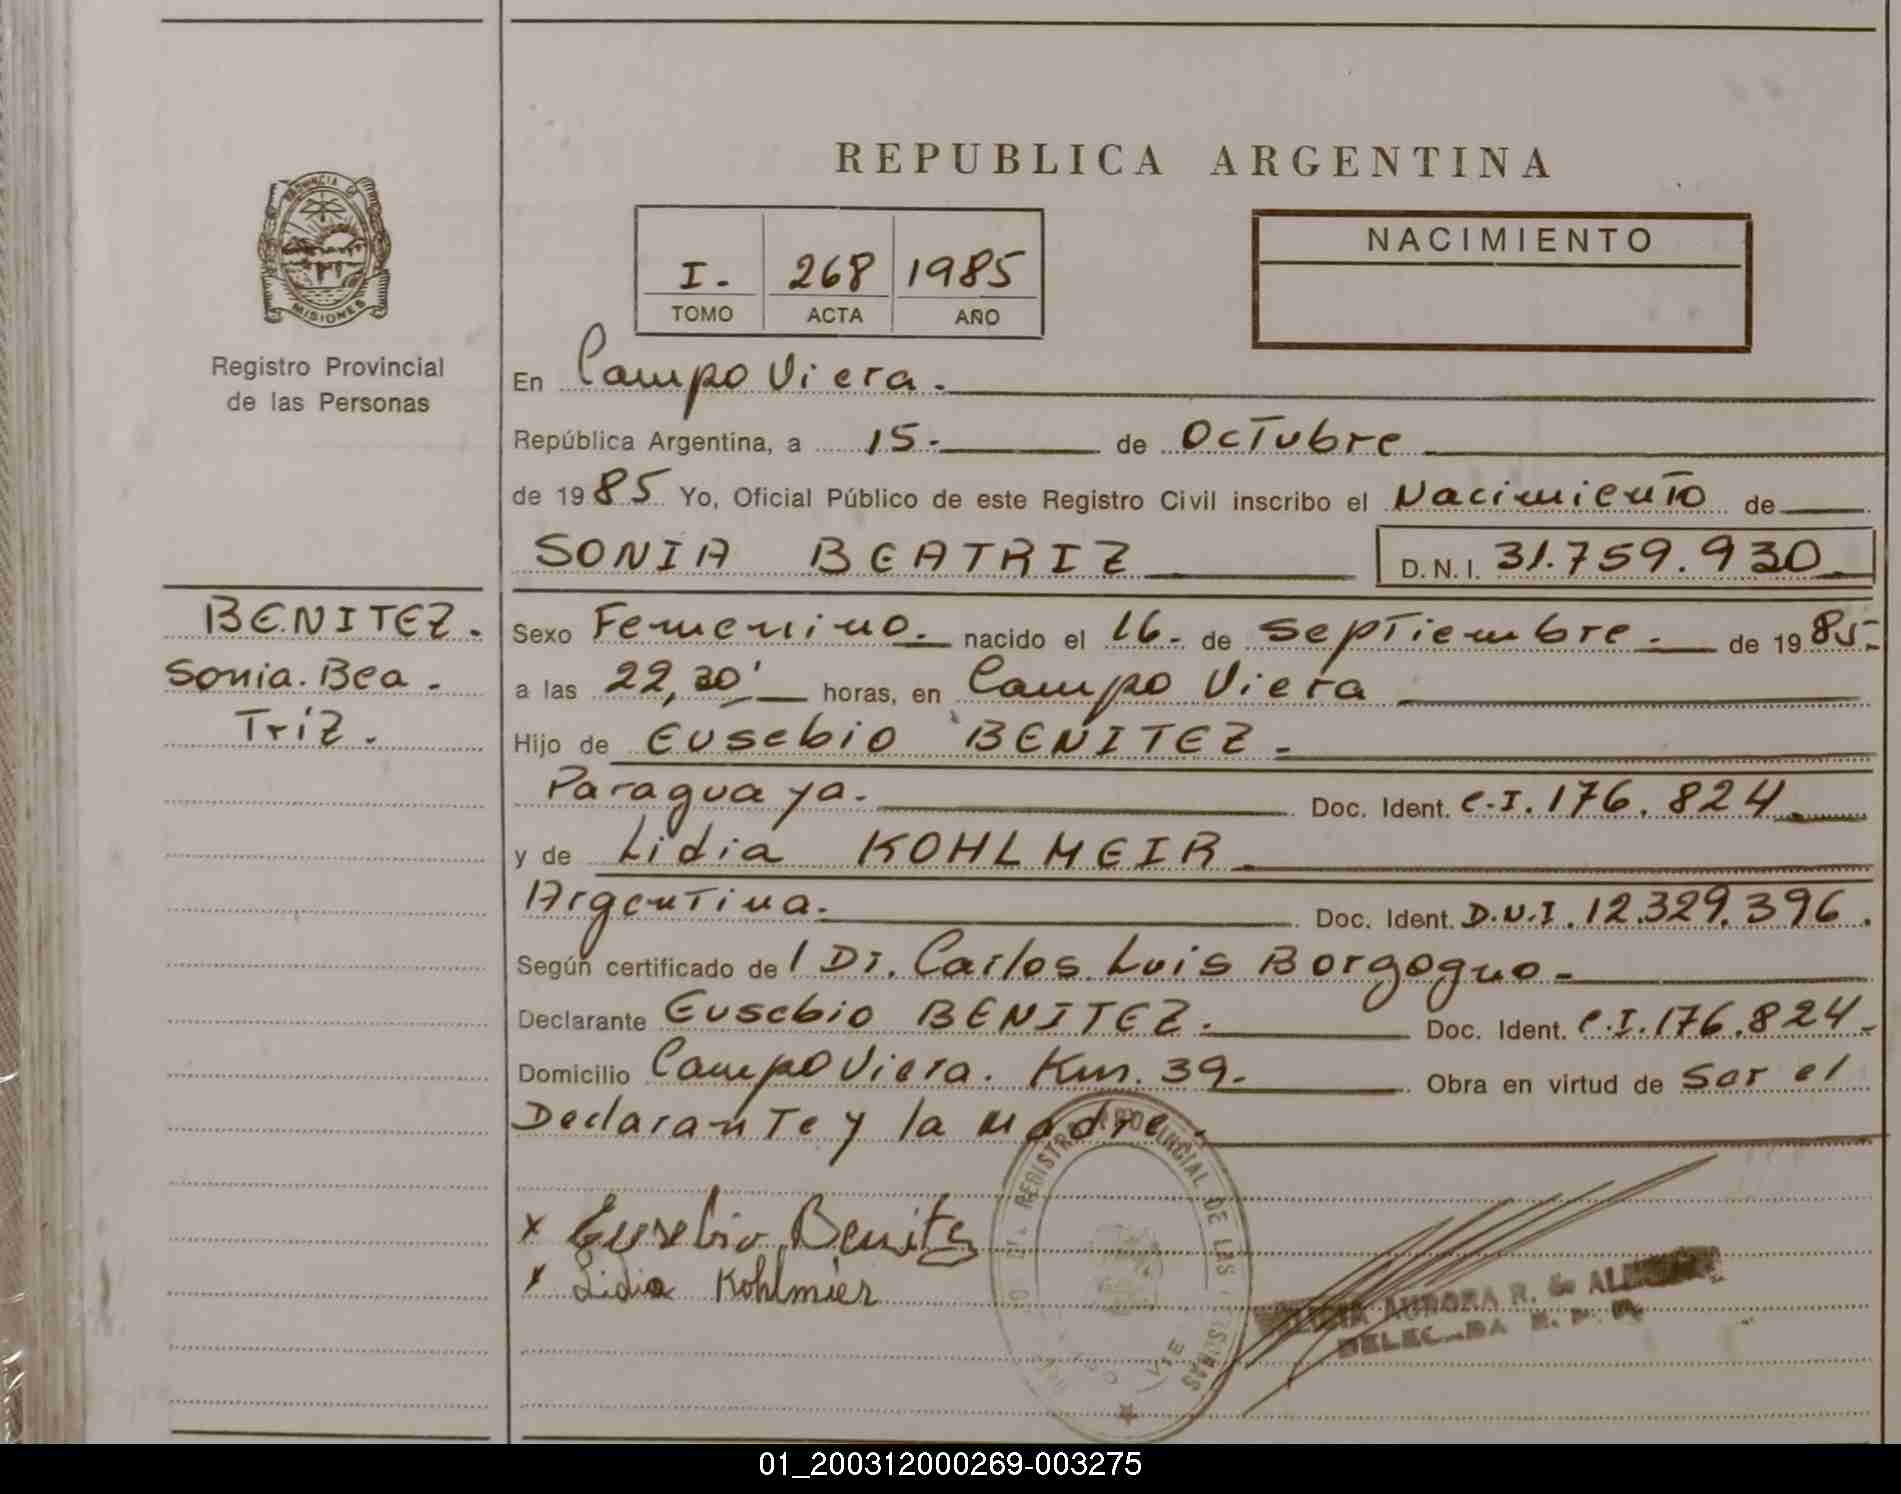 REPUBLICA ARGENTINA
PROVINCIA DE
MISIONES
Registro Provincial
de las Personas
I. 268 1985
TOMO ACTA AÑO
NACIMIENTO
En Campo Viera.
República Argentina, a 15. de Octubre
de 1985 Yo, Oficial Público de este Registro Civil inscribo el Nacimiento de
SONIA BEATRIZ D.N.I. 31.759.930
BENITEZ.
Sonia. Bea.
Triz.
Sexo Femenino. nacido el 16. de septiembre. de 1985
a las 22,30' horas, en Campo Viera
Hijo de Eusebio BENITEZ.
Paraguaya. Doc. Ident. C.I. 176.824
y de Lidia KOHLMEIR
Argentina. Doc. Ident. D.N.I. 12.329.396.
Según certificado de l Dr. Carlos Luis Borgogno
Declarante Eusebio BENITEZ. Doc. Ident. C.I. 176.824
Domicilio Campo Viera. Km. 39. Obra en virtud de Ser el
Declarante y la Madre.
x Eusebio Benitez
x Lidia Kohlmier
REGISTRO PROVINCIAL DE LAS
AURORA R. de
01_200312000269-003275